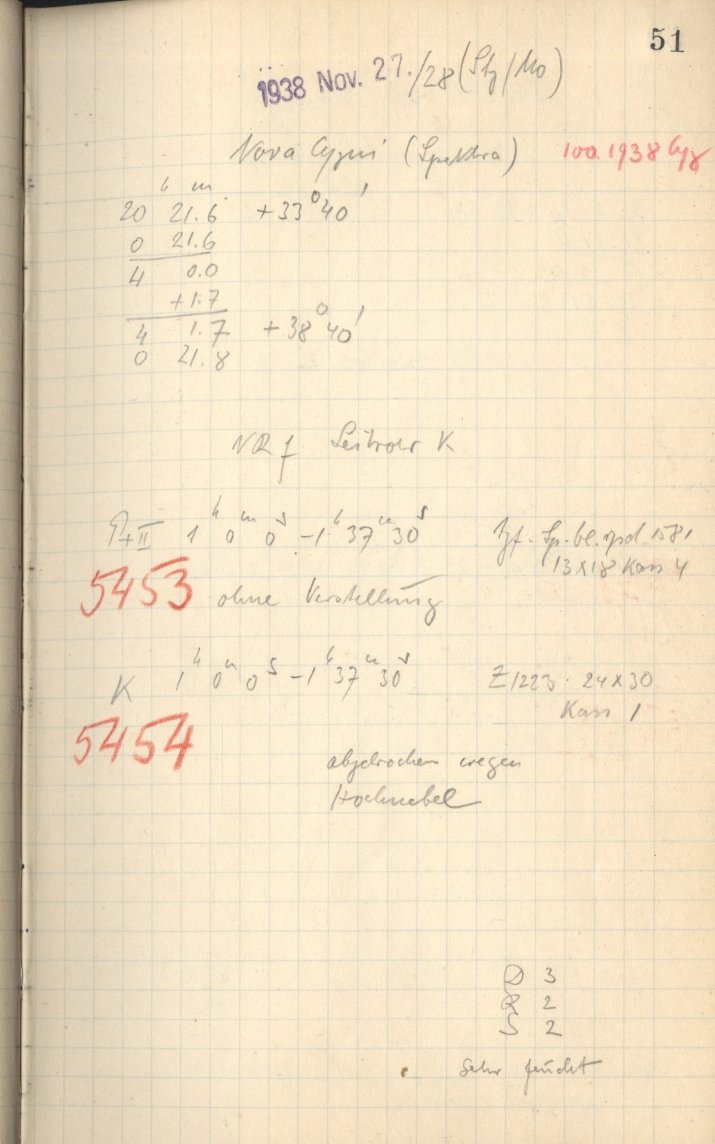 51
1938 Nov. 27./28 (Stg/Mo)
Nova Cygni (Spektra) 100.1938 Cyg
h m
20 21.6 +33°40'
0 21.6
4 0.0
+1.7
4 1.7 +38°40'
0 21.8
Leitrohr K
+II 1h 0m 0s -1h 37m 30s Sp. bl. 1581
13x18 Kass 4
5453 ohne Verstellung
K 1h 0m 0s -1h 37m 30s Z1223 · 24x30
Kass 1
5454
abgebrochen wegen
Hochnebel
D 3
R 2
S 2
sehr feucht